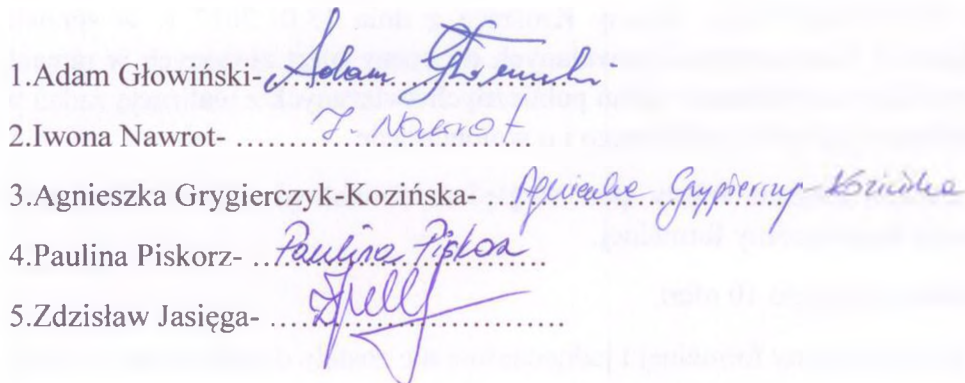 1.Adam Głowiński- Adam Głowiński
2.Iwona Nawrot- I. Nawrot
3.Agnieszka Grygierczyk-Kozińska- Agnieszka Grygierczyk-Kozińska
4.Paulina Piskorz- Paulina Piskorz
5.Zdzisław Jasięga-